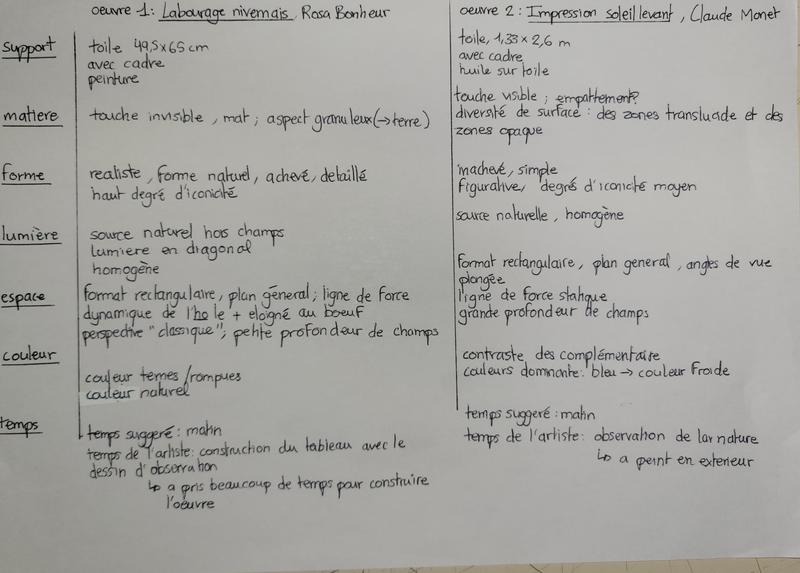 oeuvre 1 : Labourage nivernais, Rosa Bonheur
support
toile 49,5 x 65 cm
avec cadre
peinture
matiere
touche invisible, mat ; aspect granuleux (→ terre)
forme
realiste, forme naturel, achevé, detaillé
haut degré d'iconicité
lumière
source naturel hors champs
lumiere en diagonal
homogène
espace
format rectangulaire, plan général ; ligne de force
dynamique de l'ho le + eloigné au boeuf
perspective "classique" ; petite profondeur de champs
couleur
couleur ternes /rompues
couleur naturel
temps
temps suggeré : matin
temps de l'artiste : construction du tableau avec le
dessin d'observation
↳ a pris beaucoup de temps pour construire
l'oeuvre
oeuvre 2 : Impression soleil levant, Claude Monet
toile, 1,33 x 2,6 m
avec cadre
huile sur toile
touche visible ; empattement?
diversité de surface : des zones translucide et des
zones opaque
machevé, simple
figurative, degré d'iconicité moyen
source naturelle, homogène
format rectangulaire, plan general, angles de vue
plongée
ligne de force statique
grande profondeur de champs
contraste des complémentaire
couleurs dominante : bleu → couleur froide
temps suggeré : matin
temps de l'artiste : observation de la nature
↳ a peint en exterieur